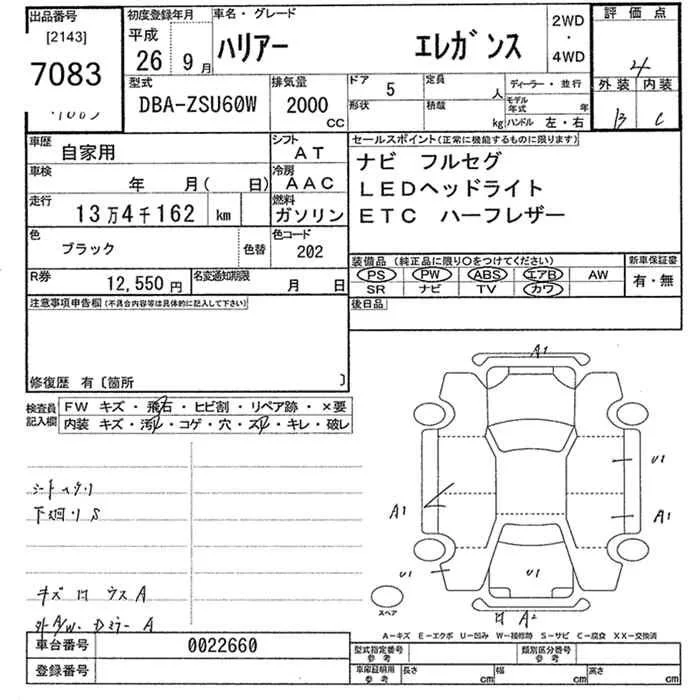 出品番号 初度登録年月 車名・グレード 2WD・4WD 評価点
[2143] 平成 26 9月 ハリアー エレガンス 4
7083 型式 排気量 ドア 5 定員 人 ディーラー・並行 外装 内装
DBA-ZSU60W 2000 CC 形状 積載 kg モデル年式 年 ハンドル 左・右 B C
車歴 自家用 シフト AT セールスポイント(正常に機能するものに限ります)
車検 年 月( 日) 冷房 AAC ナビ フルセグ
走行 13万4千162 km 燃料 ガソリン LEDヘッドライト
色 ブラック 色替 色コード 202 ETC ハーフレザー
R券 12,550円 名変通知期限 月 日 装備品(純正品に限り○をつけてください) 新車保証書
PS PW ABS エアB AW 有・無
SR ナビ TV カワ
注意事項申告欄(不具合内容等は具体的に記入して下さい) 後日品
修復歴 有〔箇所 〕
検査員記入欄 FW キズ・飛石・ヒビ割・リペア跡・×要
内装 キズ・汚レ・コゲ・穴・スレ・キレ・破レ
A1
U1
A1
A1
下廻リS
U1
U1
キズ 凹 ウスA
A2
スペア
A-キズ E-エクボ U-凹み W-補修跡 S-サビ C-腐食 XX-交換済
車台番号 0022660 型式指定番号 参考 類別区分番号 参考
登録番号 車庫証明用 参考 長さ cm 幅 cm 高さ cm